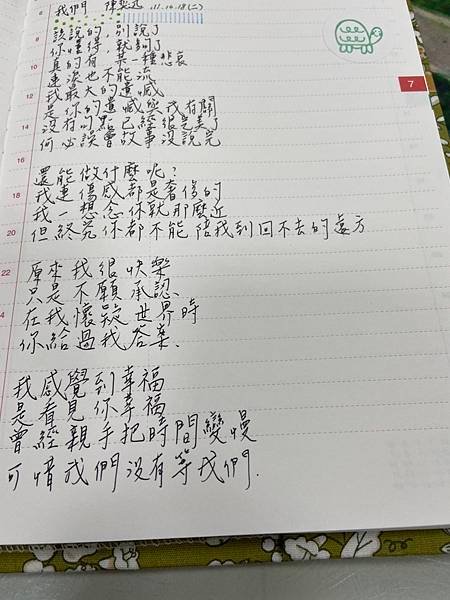 我們 陳奕迅 111.10.18(二)
7
該說的,別說了
8
你懂得,就夠了
真的有 某一種悲哀
10
連淚也不能流
我最大的遺憾
12
是你的遺憾與我有關
沒有句點已經很完美了
14
何必誤會故事沒說完
16
還能做什麼呢?
18
我連傷感都是奢侈的
我一想念你就那麼近
20
但終究你都不能陪我到回不去的遠方
22
原來我很快樂
只是不願承認
4
在我懷疑世界時
你給過我答案.
我感覺到幸福
是看見你幸福
曾經親手把時間變慢
可惜我們沒有等我們.